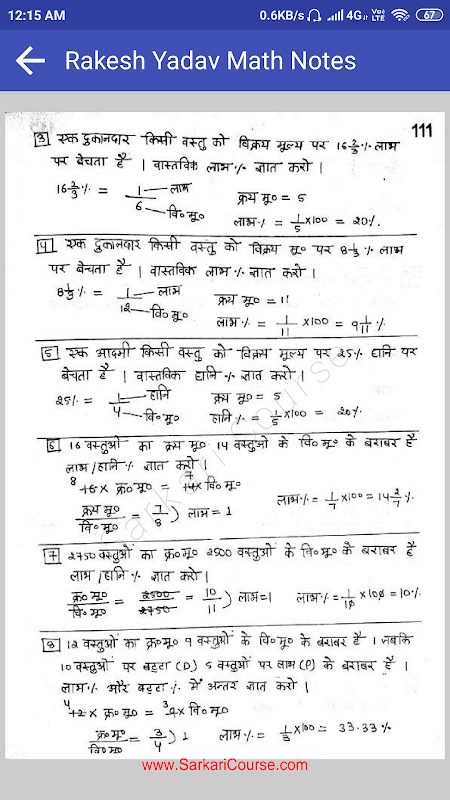 12:15 AM 0.6KB/s 4G VoLTE 67
Rakesh Yadav Math Notes
111
3 एक दुकानदार किसी वस्तु को विक्रय मूल्य पर 16⅔% लाभ
पर बेचता है । वास्तविक लाभ % ज्ञात करो ।
16⅔% = 1/6 लाभ वि०मू० क्रय मू० = 5
लाभ % = 1/5 ×100 = 20%
4 एक दुकानदार किसी वस्तु को विक्रय मू० पर 8⅓ % लाभ
पर बेचता है । वास्तविक लाभ % ज्ञात करो ।
8⅓% = 1/12 लाभ वि०मू० क्रय मू० = 11
लाभ % = 1/11 ×100 = 9 1/11 %
5 एक आदमी किसी वस्तु को विक्रय मूल्य पर 25% हानि पर
बेचता है । वास्तविक हानि % ज्ञात करो ।
25% = 1/4 हानि वि०मू० क्रय मू० = 5
हानि % = 1/5 ×100 = 20%
6 16 वस्तुओं का क्रय मू० 14 वस्तुओं के वि०मू० के बराबर है
लाभ/हानि % ज्ञात करो ।
8 16 × क्र०मू० = 7 14 × वि०मू०
क्रय मू०/वि०मू० = 7/8 ) लाभ = 1 लाभ % = 1/7 ×100 = 14 2/7 %
7 2750 वस्तुओं का क्र०मू० 2500 वस्तुओं के वि०मू० के बराबर है
लाभ/हानि % ज्ञात करो ।
क्र०मू०/वि०मू० = 2500/2750 = 10/11 ) लाभ=1 लाभ % = 1/10 ×100 = 10%
8 12 वस्तुओं का क्र०मू० 9 वस्तुओं के वि०मू० के बराबर है । जबकि
10 वस्तुओं पर बट्टा (D) 5 वस्तुओं पर लाभ (P) के बराबर है ।
लाभ % और बट्टा % में अन्तर ज्ञात करो ।
4 12 × क्र०मू० = 3 9 × वि०मू०
क्र०मू०/वि०मू० = 3/4 ) 1 लाभ % = 1/3 ×100 = 33.33%
Sarkari Course
www.SarkariCourse.com